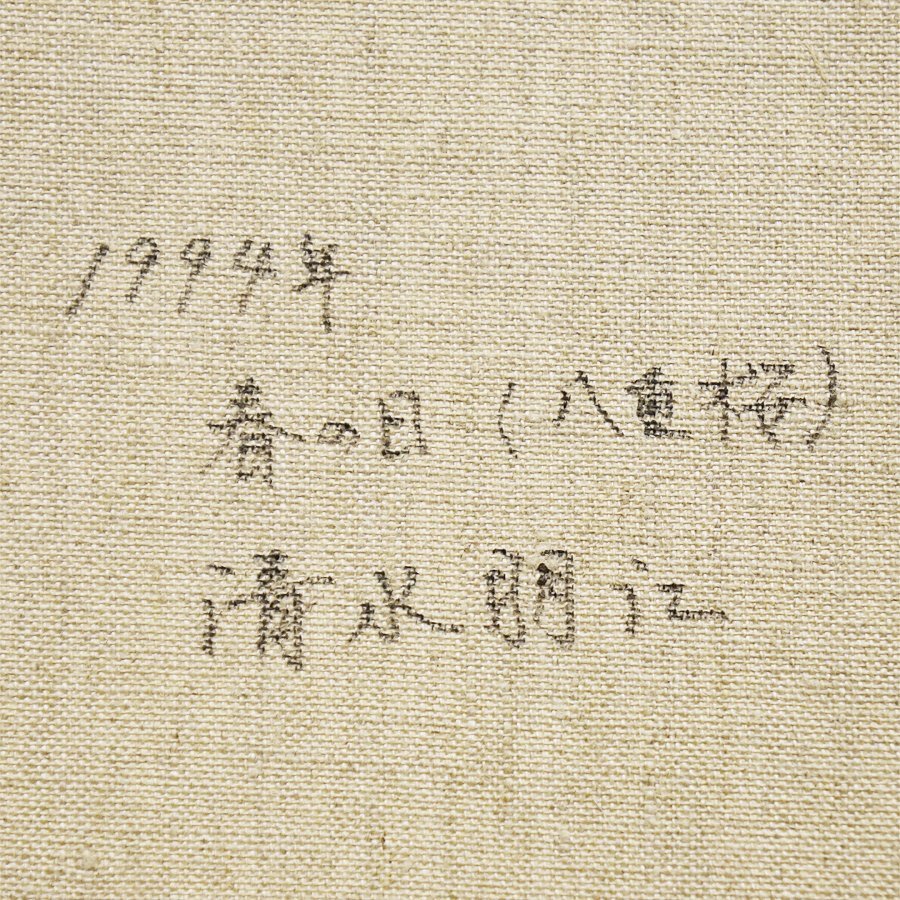 1994年
春の日(八重桜)
清水明江